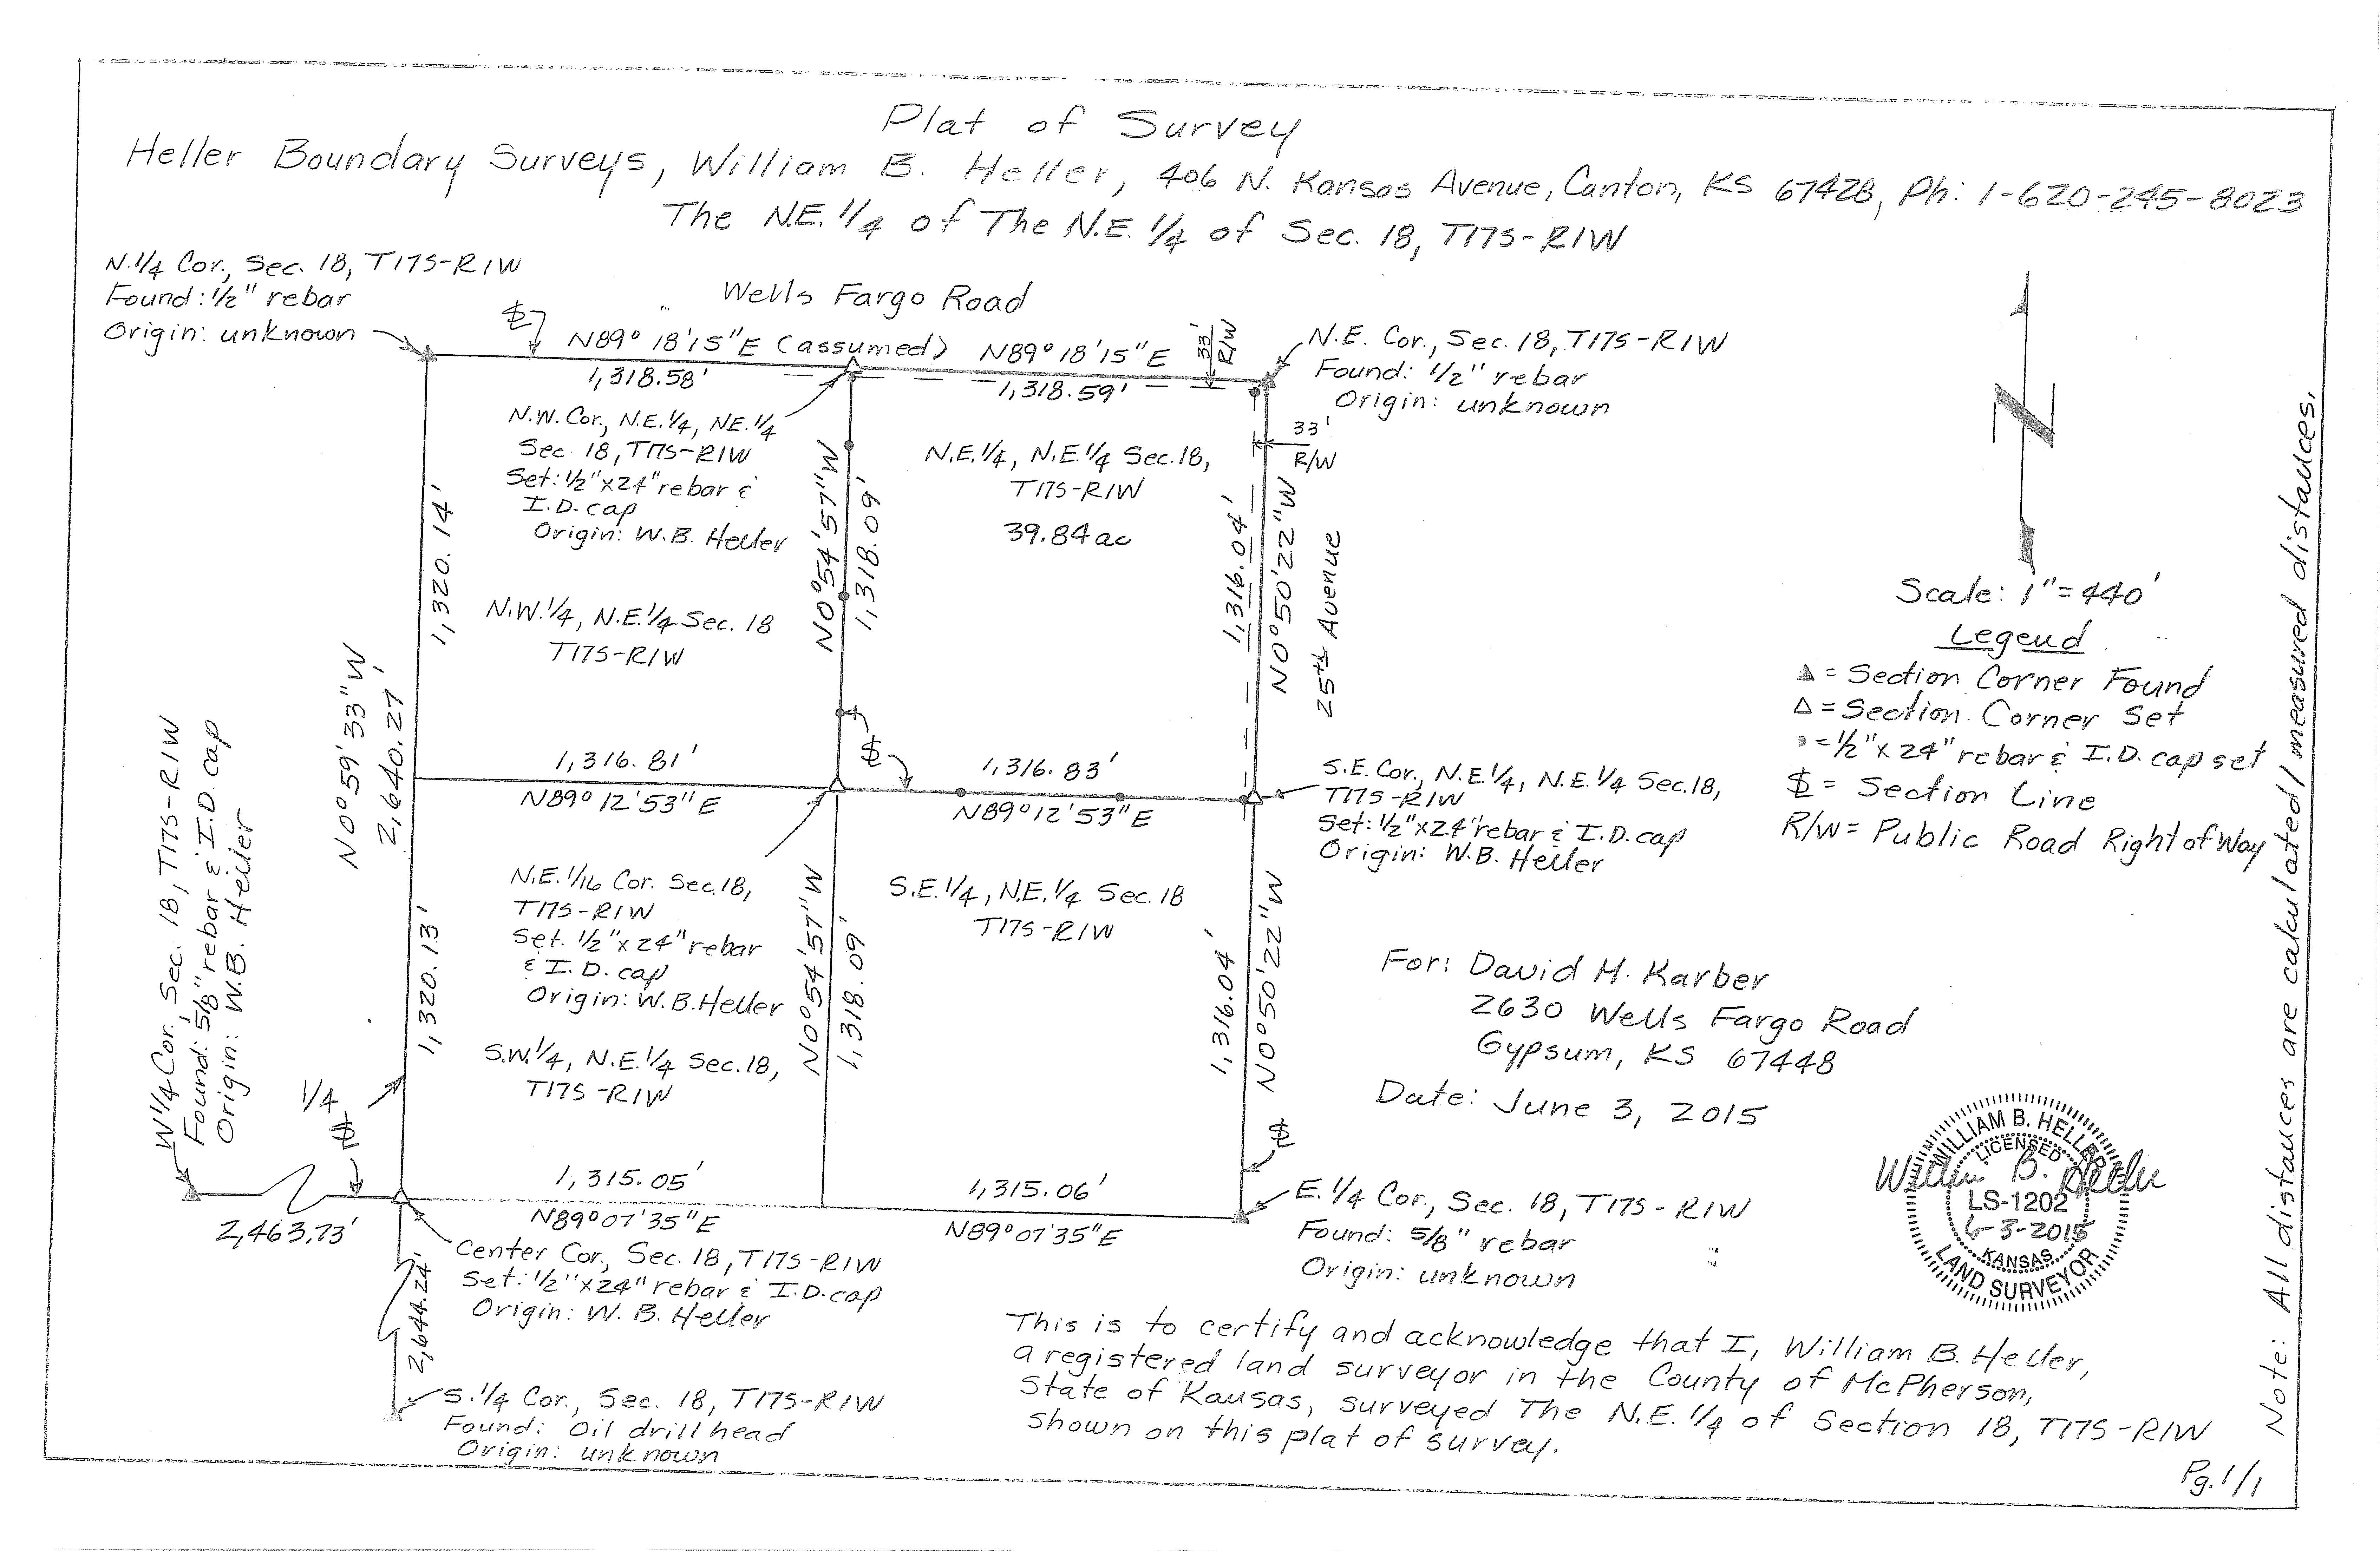 Plat of Survey
Heller Boundary Surveys, William B. Heller, 406 N. Kansas Avenue, Canton, KS 67428, Ph: 1-620-245-8023
The N.E. 1/4 of The N.E. 1/4 of Sec. 18, T17S-R1W
N.1/4 Cor., Sec. 18, T17S-R1W
Found: 1/2" rebar
Origin: unknown
Wells Fargo Road
N89° 18'15"E (assumed)
1,318.58'
N89°18'15"E
1,318.59'
33'
R/W
N.E. Cor., Sec. 18, T17S-R1W
Found: 1/2" rebar
Origin: unknown
33'
R/W
N.W. Cor., N.E.1/4, NE.1/4
Sec. 18, T17S-R1W
Set: 1/2"x24" rebar &
I.D. cap
Origin: W.B. Heller
N.E.1/4, N.E.1/4 Sec.18,
T17S-R1W
39.84 ac
1,320.14'
N0°54'57"W
1,318.09'
1,316.04'
N0°50'22"W
25th Avenue
N.W.1/4, N.E.1/4 Sec. 18
T17S-R1W
N0°59'33"W
2,640.27'
Scale: 1"=440'
Legend
▲ = Section Corner Found
△ = Section Corner Set
• = 1/2"x 24" rebar & I.D. cap set
= Section Line
R/W = Public Road Right of Way
1,316.81'
N89°12'53"E
1,316.83'
N89°12'53"E
S.E. Cor., N.E.1/4, N.E.1/4 Sec.18,
T17S-R1W
Set: 1/2"x24" rebar & I.D. cap
Origin: W.B. Heller
W1/4 Cor., Sec. 18, T17S-R1W
Found: 5/8" rebar & I.D. cap
Origin: W.B. Heller
N.E.1/16 Cor. Sec.18,
T17S-R1W
Set. 1/2"x24" rebar
& I.D. cap
Origin: W.B. Heller
S.E.1/4, N.E.1/4 Sec.18
T17S-R1W
1,320.13'
N0°54'57"W
1,318.09"
1,316.04'
N0°50'22"W
S.W.1/4, N.E.1/4 Sec.18,
T17S-R1W
1/4
For: David M. Karber
2630 Wells Fargo Road
Gypsum, KS 67448
Date: June 3, 2015
1,315.05'
N89°07'35"E
1,315.06'
N89°07'35"E
2,463.73'
E.1/4 Cor., Sec. 18, T17S-R1W
Found: 5/8" rebar
Origin: unknown
Center Cor., Sec. 18, T17S-R1W
Set: 1/2"x24" rebar & I.D. cap
Origin: W. B. Heller
2,644.24'
S.1/4 Cor., Sec. 18, T17S-R1W
Found: Oil drill head
Origin: unknown
WILLIAM B. HELLER
LICENSED
William B. Heller
LS-1202
6-3-2015
KANSAS
LAND SURVEYOR
This is to certify and acknowledge that I, William B. Heller,
a registered land surveyor in the County of McPherson,
State of Kansas, surveyed The N.E. 1/4 of Section 18, T17S-R1W
shown on this plat of survey.
Note: All distances are calculated/measured distances.
Pg. 1/1